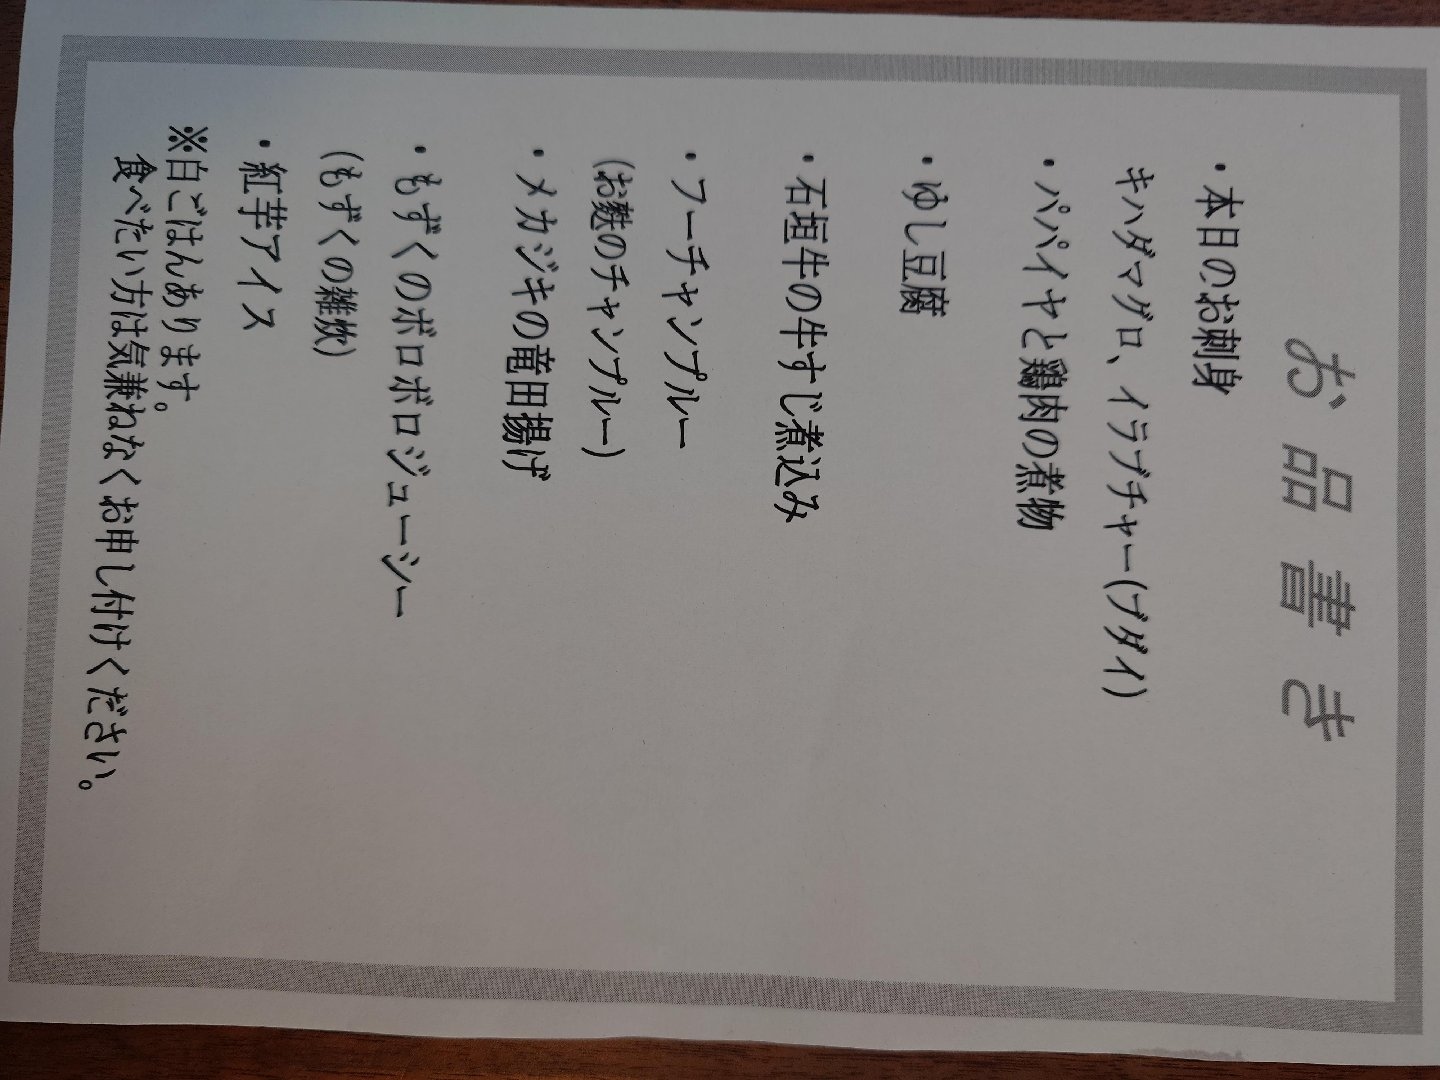 お品書き
・本日のお刺身
キハダマグロ、イラブチャー(ブダイ)
・パパイヤと鶏肉の煮物
・ゆし豆腐
・石垣牛の牛すじ煮込み
・フーチャンプルー
(お麩のチャンプルー)
・メカジキの竜田揚げ
・もずくのボロボロジューシー
(もずくの雑炊)
・紅芋アイス
※白ごはんあります。
食べたい方は気兼ねなくお申し付けください。